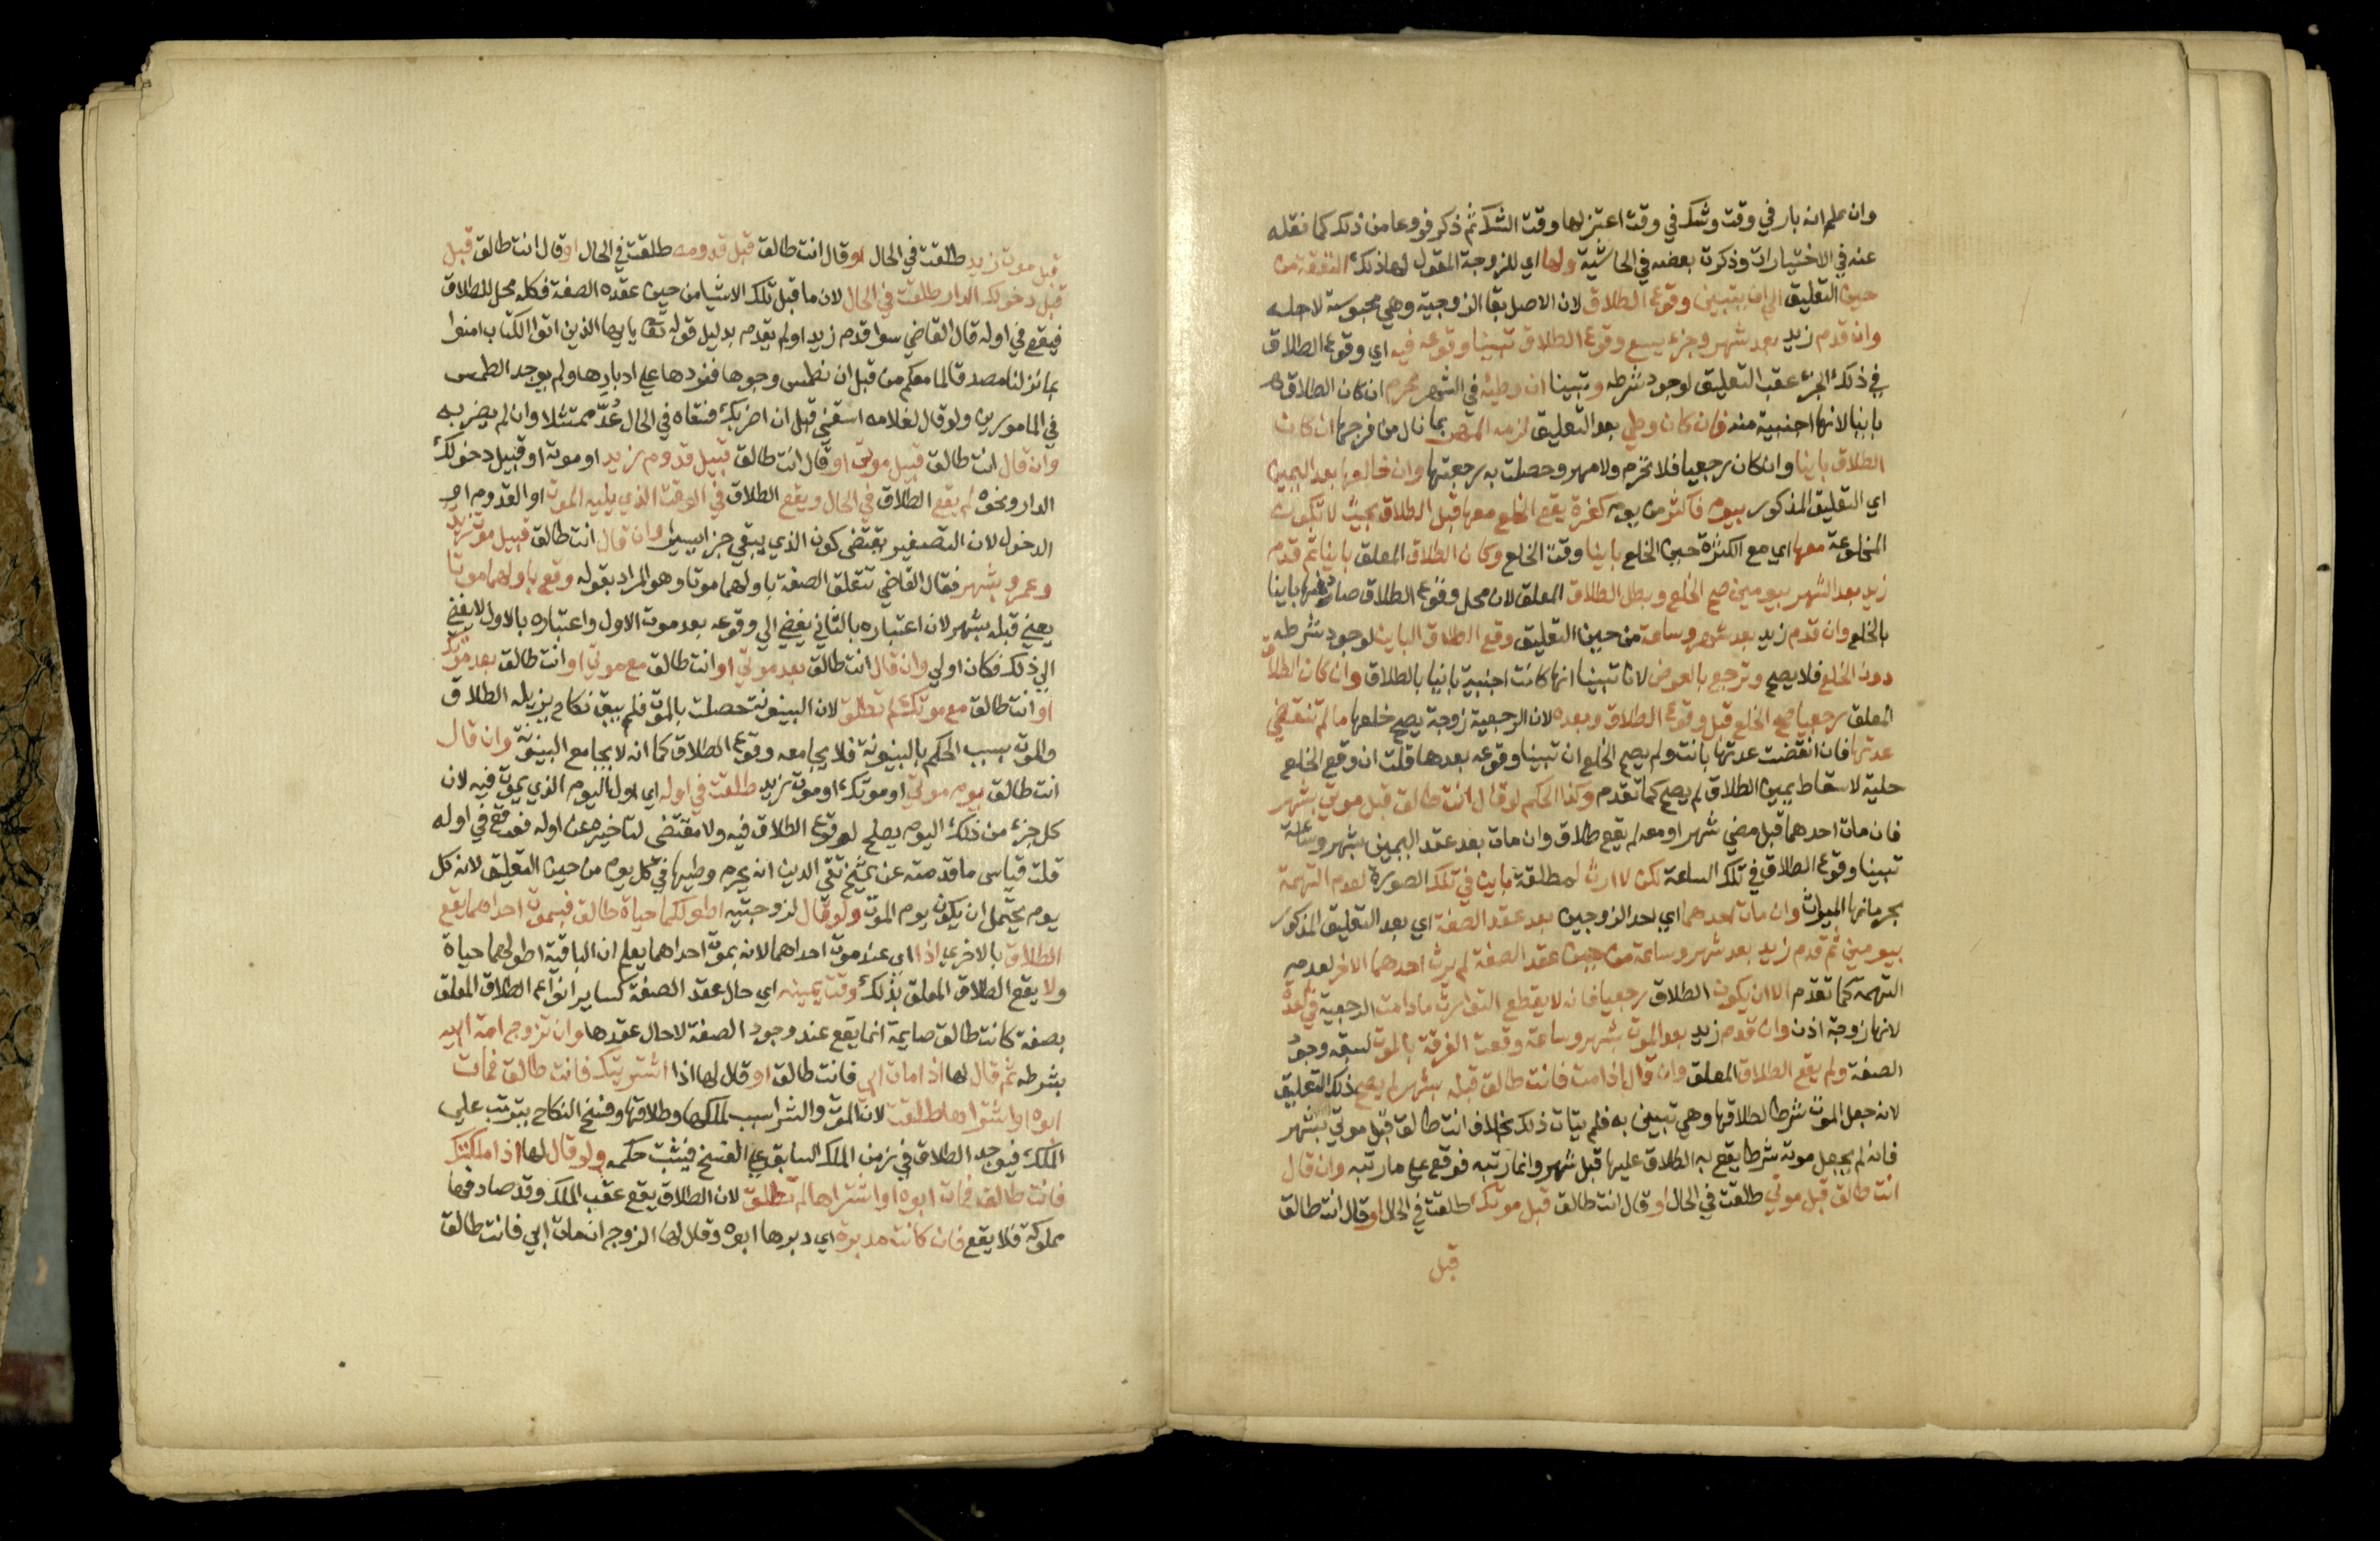 وان علم انه بار في وقت وشك في وقت اعتزلها وقت الشك ثم ذكر فروعا من ذلك كما نقله
عنه في الاختيارات وذكرت بعضه في الحاشية ولها اي للزوجة المقول لها ذلك النفقة من
حين التعليق الي ان يتبين وقوع الطلاق لان الاصل بقا الزوجية وهي محبوسة لاجله
وان قدم زيد بعد شهر وجزء يسع وقوع الطلاق تبينا وقوعه فيه اي وقوع الطلاق
في ذلك الجزء عقب التعليق لوجود شرطه وتبينا ان وطيه في الشهر محرم ان كان الطلاق
باينا لانها اجنبية منه فان كان وطي بعد التعليق لزمه المهر بما نال من فرجها ان كان
الطلاق باينا وان كان رجعيا فلا تحرم ولا مهر وحصلت به رجعتها وان خالعها بعد اليمين
اي التعليق المذكور بيوم فاكثر من يوم كثرة يقع الخلع معها قبل الطلاق بحيث لا تكون
المخلوعة معها اي مع الكثرة حين الخلع باينا وقت الخلع وكان الطلاق المعلق باينا ثم قدم
زيد بعد الشهر بيومين صح الخلع وبطل الطلاق المعلق لان محل وقوع الطلاق صادفها باينا
بالخلع وان قدم زيد بعد شهر وساعة من حين التعليق وقع الطلاق الباين لوجود شرطه
دون الخلع فلا يصح وترجع بالعوض لانا تبينا انها كانت اجنبية باينا بالطلاق وان كان الطلاق
المعلق رجعيا صح الخلع قبل وقوع الطلاق وبعده لان الرجعية زوجة يصح خلعها ما لم تنقضي
عدتها فان انقضت عدتها بانت ولم يصح الخلع ان تبينا وقوعه بعدها قلت ان وقع الخلع
حلية لاسقاط يمين الطلاق لم يصح كما تقدم وكذا الحكم لو قال انت طالق قبل موتي بشهر
فان مات احدهما قبل مضي شهر او معه لم يقع طلاق وان مات بعد عقد اليمين بشهر وساعة
تبينا وقوع الطلاق في تلك الساعة لكن لا ارث لمطلقة باين في تلك الصورة لعدم التهمة
بحرمانها الميراث وان مات احدهما اي احد الزوجين بعد عقد الصفة اي بعد التعليق المذكور
بيومين ثم قدم زيد بعد شهر وساعة من حين عقد الصفة لم يرث احدهما الاخر لعدم
التهمة كما تقدم الا ان يكون الطلاق رجعيا فانه لا يقطع التوارث ما دامت الرجعية في عدة
لانها زوجة اذن وان قدم زيد بعد الموت بشهر وساعة وقعت الفرقة بالموت لسبقه وجود
الصفة ولم يقع الطلاق المعلق وان قال اذا مت فانت طالق قبله بشهر لم يصح ذلك التعليق
لانه جعل الموت شرطا لطلاقها وهي تبين به فلم يتات ذلك بخلاف انت طالق قبل موتي بشهر
فانه لم يجعل موته شرطا يقع به الطلاق عليها قبل شهر وانما رتبه فوقع علي ما رتبه وان قال
انت طالق قبل موتي طلقت في الحال او قال انت طالق قبل موتك طلقت في الحال او قال انت طالق
قبل
قبل موت زيد طلقت في الحال او قال انت طالق قبل قدومه طلقت في الحال او قال انت طالق قبل
قبل دخولك الدار طلقت في الحال لان ما قبل تلك الاشيا من حين عقده الصفة فكله محل للطلاق
فيقع في اوله قال القاضي سوا قدم زيد او لم يقدم بدليل قوله تعا يا ايها الذين اتوا الكتاب امنوا
بما نزلنا مصدقا لما معكم من قبل ان نطمس وجوها فنردها علي ادبارها ولم يوجد الطمس
في المامورين ولو قال لغلامه اسقني قبل ان اضربك فسقاه في الحال عُدّ ممتثلا وان لم يضربه
وان قال انت طالق قبيل موتي او قال انت طالق قبيل قدوم زيد او موته او قبيل دخولك
الدار ونحوه لم يقع الطلاق في الحال ويقع الطلاق في الوقت الذي يليه الموت او القدوم او
الدخول لان التصغير يقتضي كون الذي يبقي جزا يسيرا وان قال انت طالق قبيل موت زيد
وعمرو بشهر فقال القاضي تتعلق الصفة باولهما موتا وهو المراد بقوله وقع باولهما موتا
يعني قبله بشهر لان اعتباره بالثاني يفضي الي وقوعه بعد موت الاول واعتباره بالاول لا يفضي
الي ذلك فكان اولي وان قال انت طالق بعد موتي او انت طالق مع موتي او انت طالق بعد موتك
او انت طالق مع موتك لم تطلق لان البينونة حصلت بالموت فلم يبق نكاح يزيله الطلاق
والموت سبب الحكم بالبينونة فلا يجامعه وقوع الطلاق كما انه لا يجامع البينونة وان قال
انت طالق يوم موتي او موتك او موت زيد طلقت في اوله اي اول اليوم الذي يموت فيه لان
كل جزء من ذلك اليوم يصلح لوقوع الطلاق فيه ولا مقتضى لتاخيره عن اوله فوقع في اوله
قلت قياس ما قدمته عن الشيخ تقي الدين انه يحرم وطيها في كل يوم من حين التعليق لانه كل
يوم يحتمل ان يكون يوم الموت ولو قال لزوجتيه اطولكما حياة طالق فبموت احداهما يقع
الطلاق بالاخري اذا اي عند موت احداهما لانه بموت احداهما يعلم ان الباقية اطولهما حياة
ولا يقع الطلاق المعلق بذلك وقت يمينه اي حال عقد الصفة كساير انواع الطلاق المعلق
بصفة كانت طالق صايمة انما يقع عند وجود الصفة لا حال عقدها وان تزوج امة ابيه
بشرطه ثم قال لها اذا مات ابي فانت طالق او قال لها اذا اشتريتك فانت طالق فمات
ابوه او اشتراها طلقت لان الموت والشرا سبب لملكها وطلاقها وفسخ النكاح يترتب علي
الملك فيوجد الطلاق في زمن الملك السابق علي الفسخ فيثبت حكمه ولو قال لها اذا ملكتك
فانت طالق فمات ابوه او اشتراها لم تطلق لان الطلاق يقع عقب الملك وقد صادفها
مملوكة فلا يقع فان كانت مدبرة اي دبرها ابوه وقال لها الزوج ان مات ابي فانت طالق